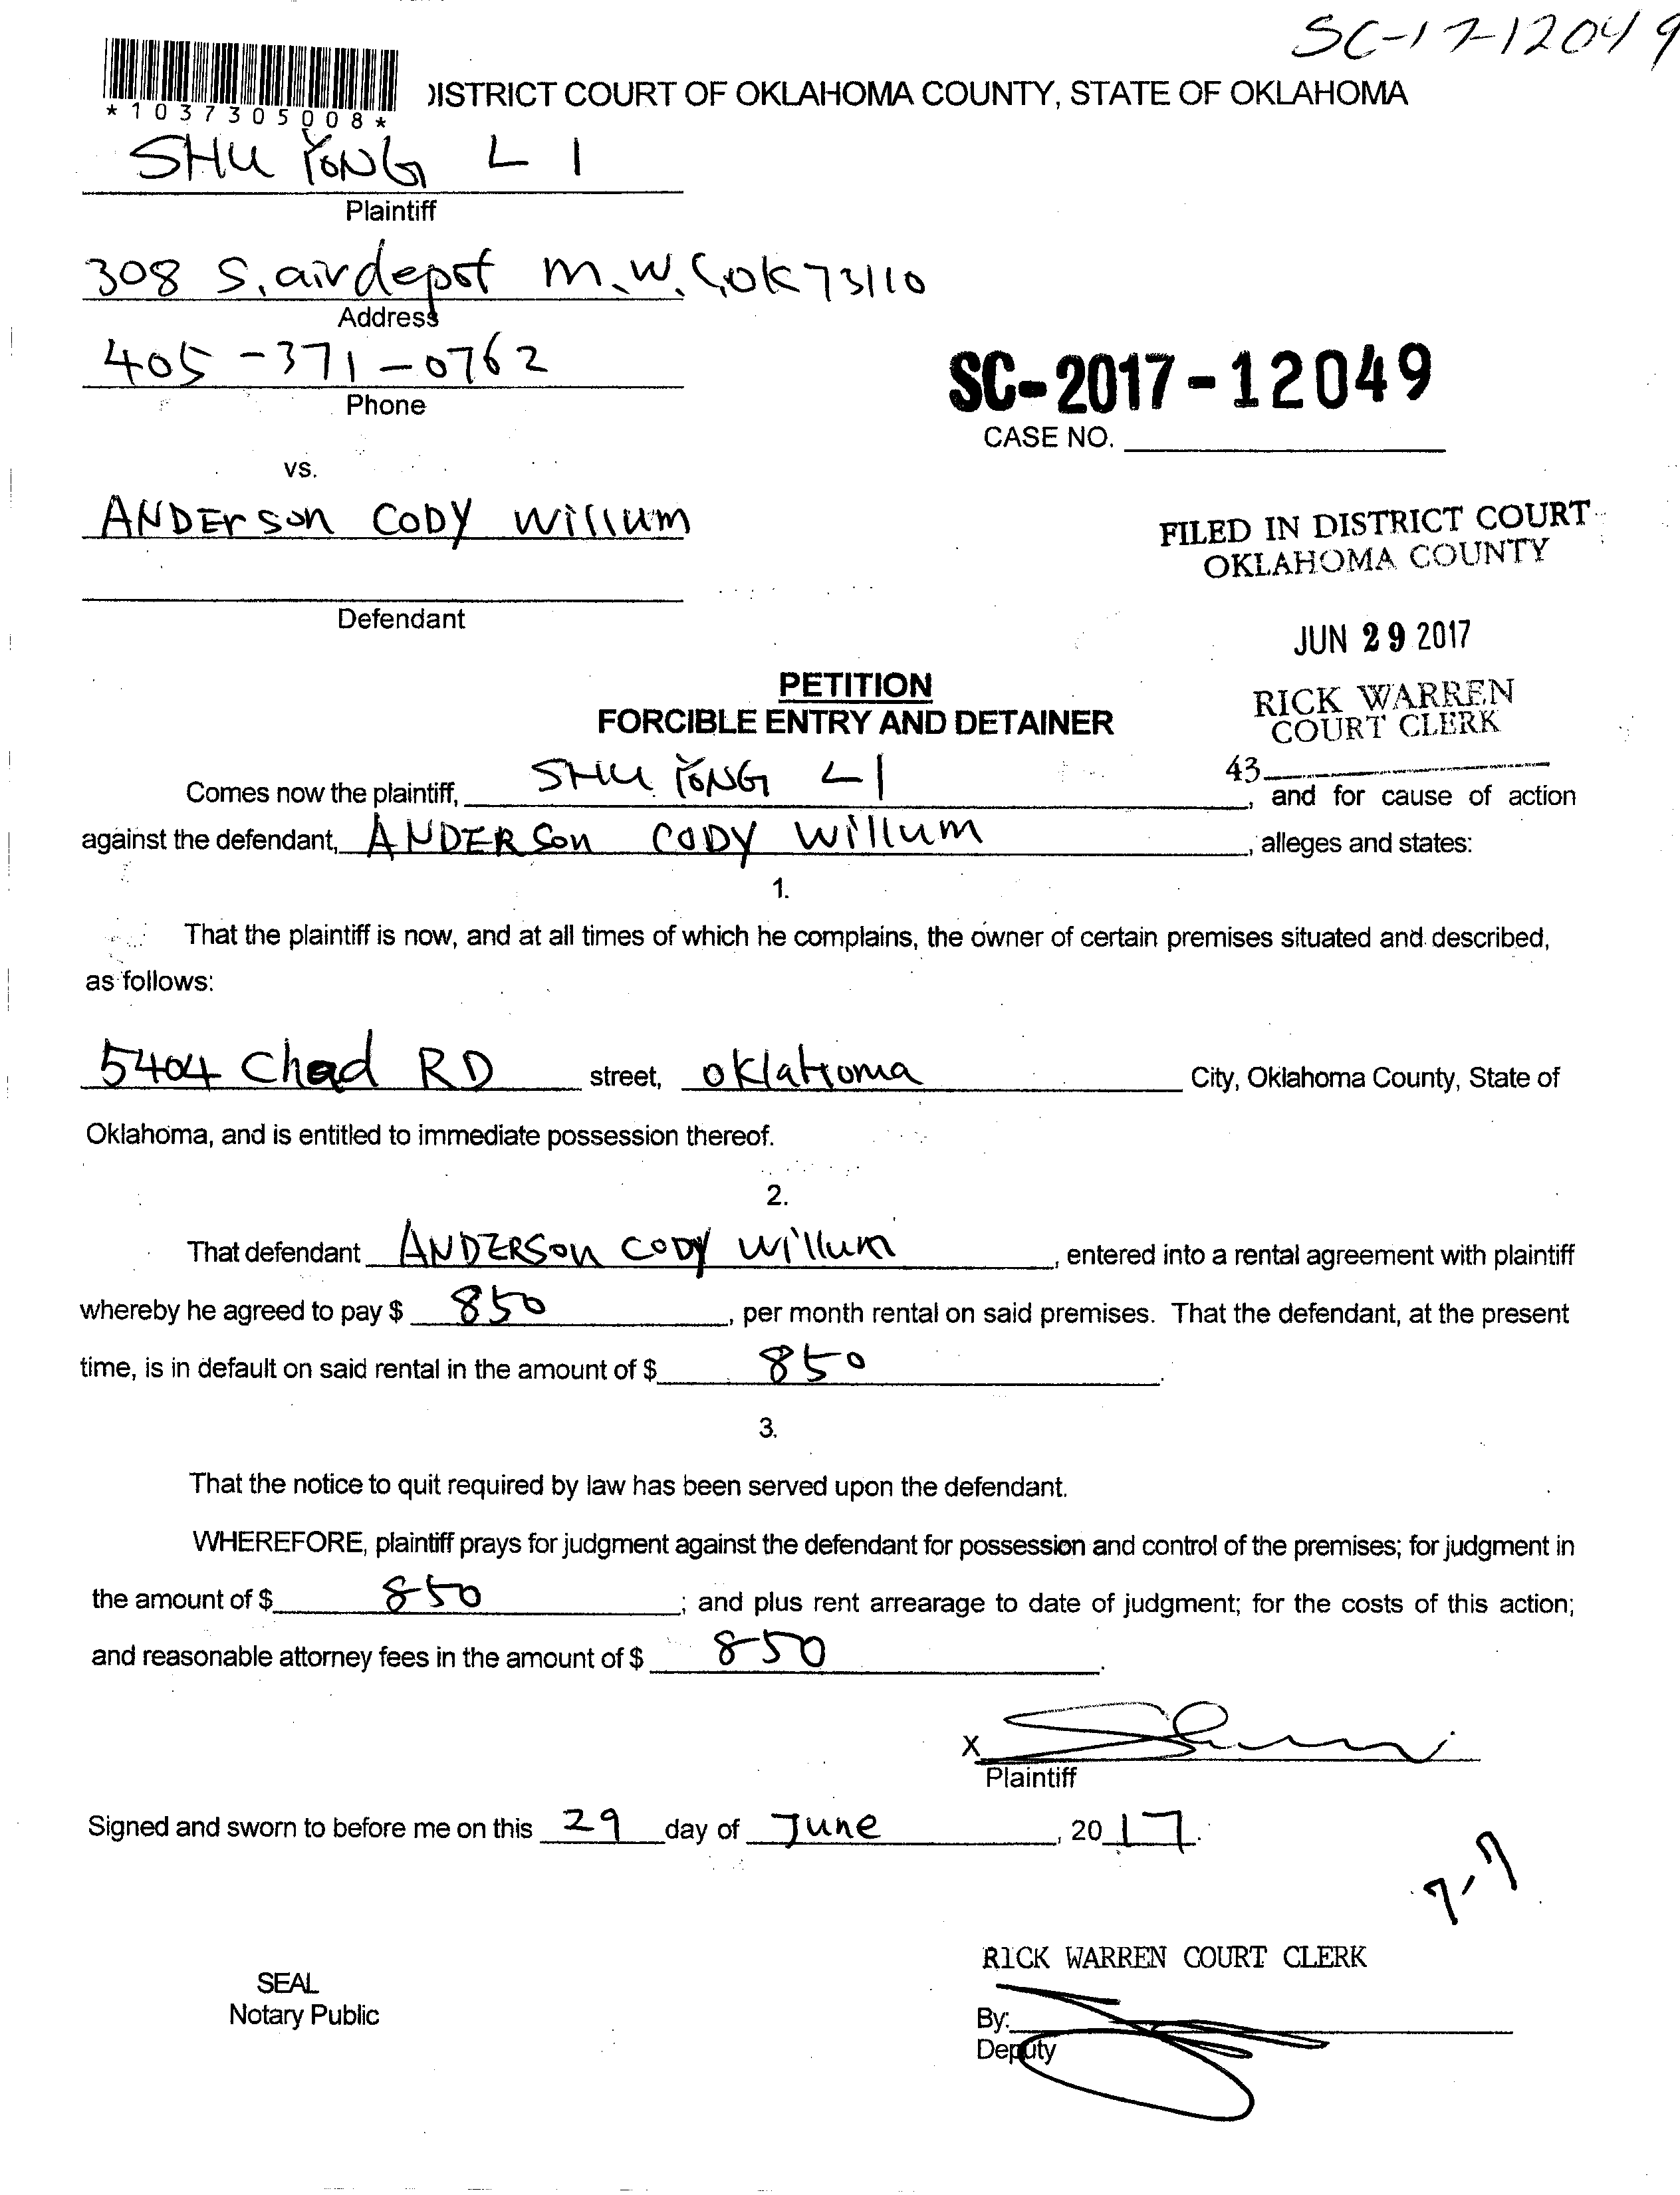 SC-17-12049
*1037305008*
DISTRICT COURT OF OKLAHOMA COUNTY, STATE OF OKLAHOMA
SHU YONG LI
Plaintiff
308 S. airdepot M.W.C, OK 73110
Address
405-371-0762
Phone
SC-2017-12049
CASE NO.
vs.
ANDErson CODY Willum
Defendant
FILED IN DISTRICT COURT
OKLAHOMA COUNTY
JUN 29 2017
RICK WARREN
COURT CLERK
43
PETITION
FORCIBLE ENTRY AND DETAINER
Comes now the plaintiff, SHU YONG LI, and for cause of action
against the defendant, ANDERSon CODY Willum, alleges and states:
1.
That the plaintiff is now, and at all times of which he complains, the owner of certain premises situated and described,
as follows:
5404 Chad RD street, oklaHoma City, Oklahoma County, State of
Oklahoma, and is entitled to immediate possession thereof.
2.
That defendant ANDERSon CODY Willum, entered into a rental agreement with plaintiff
whereby he agreed to pay $ 850, per month rental on said premises. That the defendant, at the present
time, is in default on said rental in the amount of $ 850.
3.
That the notice to quit required by law has been served upon the defendant.
WHEREFORE, plaintiff prays for judgment against the defendant for possession and control of the premises; for judgment in
the amount of $ 850; and plus rent arrearage to date of judgment; for the costs of this action;
and reasonable attorney fees in the amount of $ 850.
X
Plaintiff
Signed and sworn to before me on this 29 day of June, 2017.
7-7
RICK WARREN COURT CLERK
SEAL
Notary Public
By:
Deputy